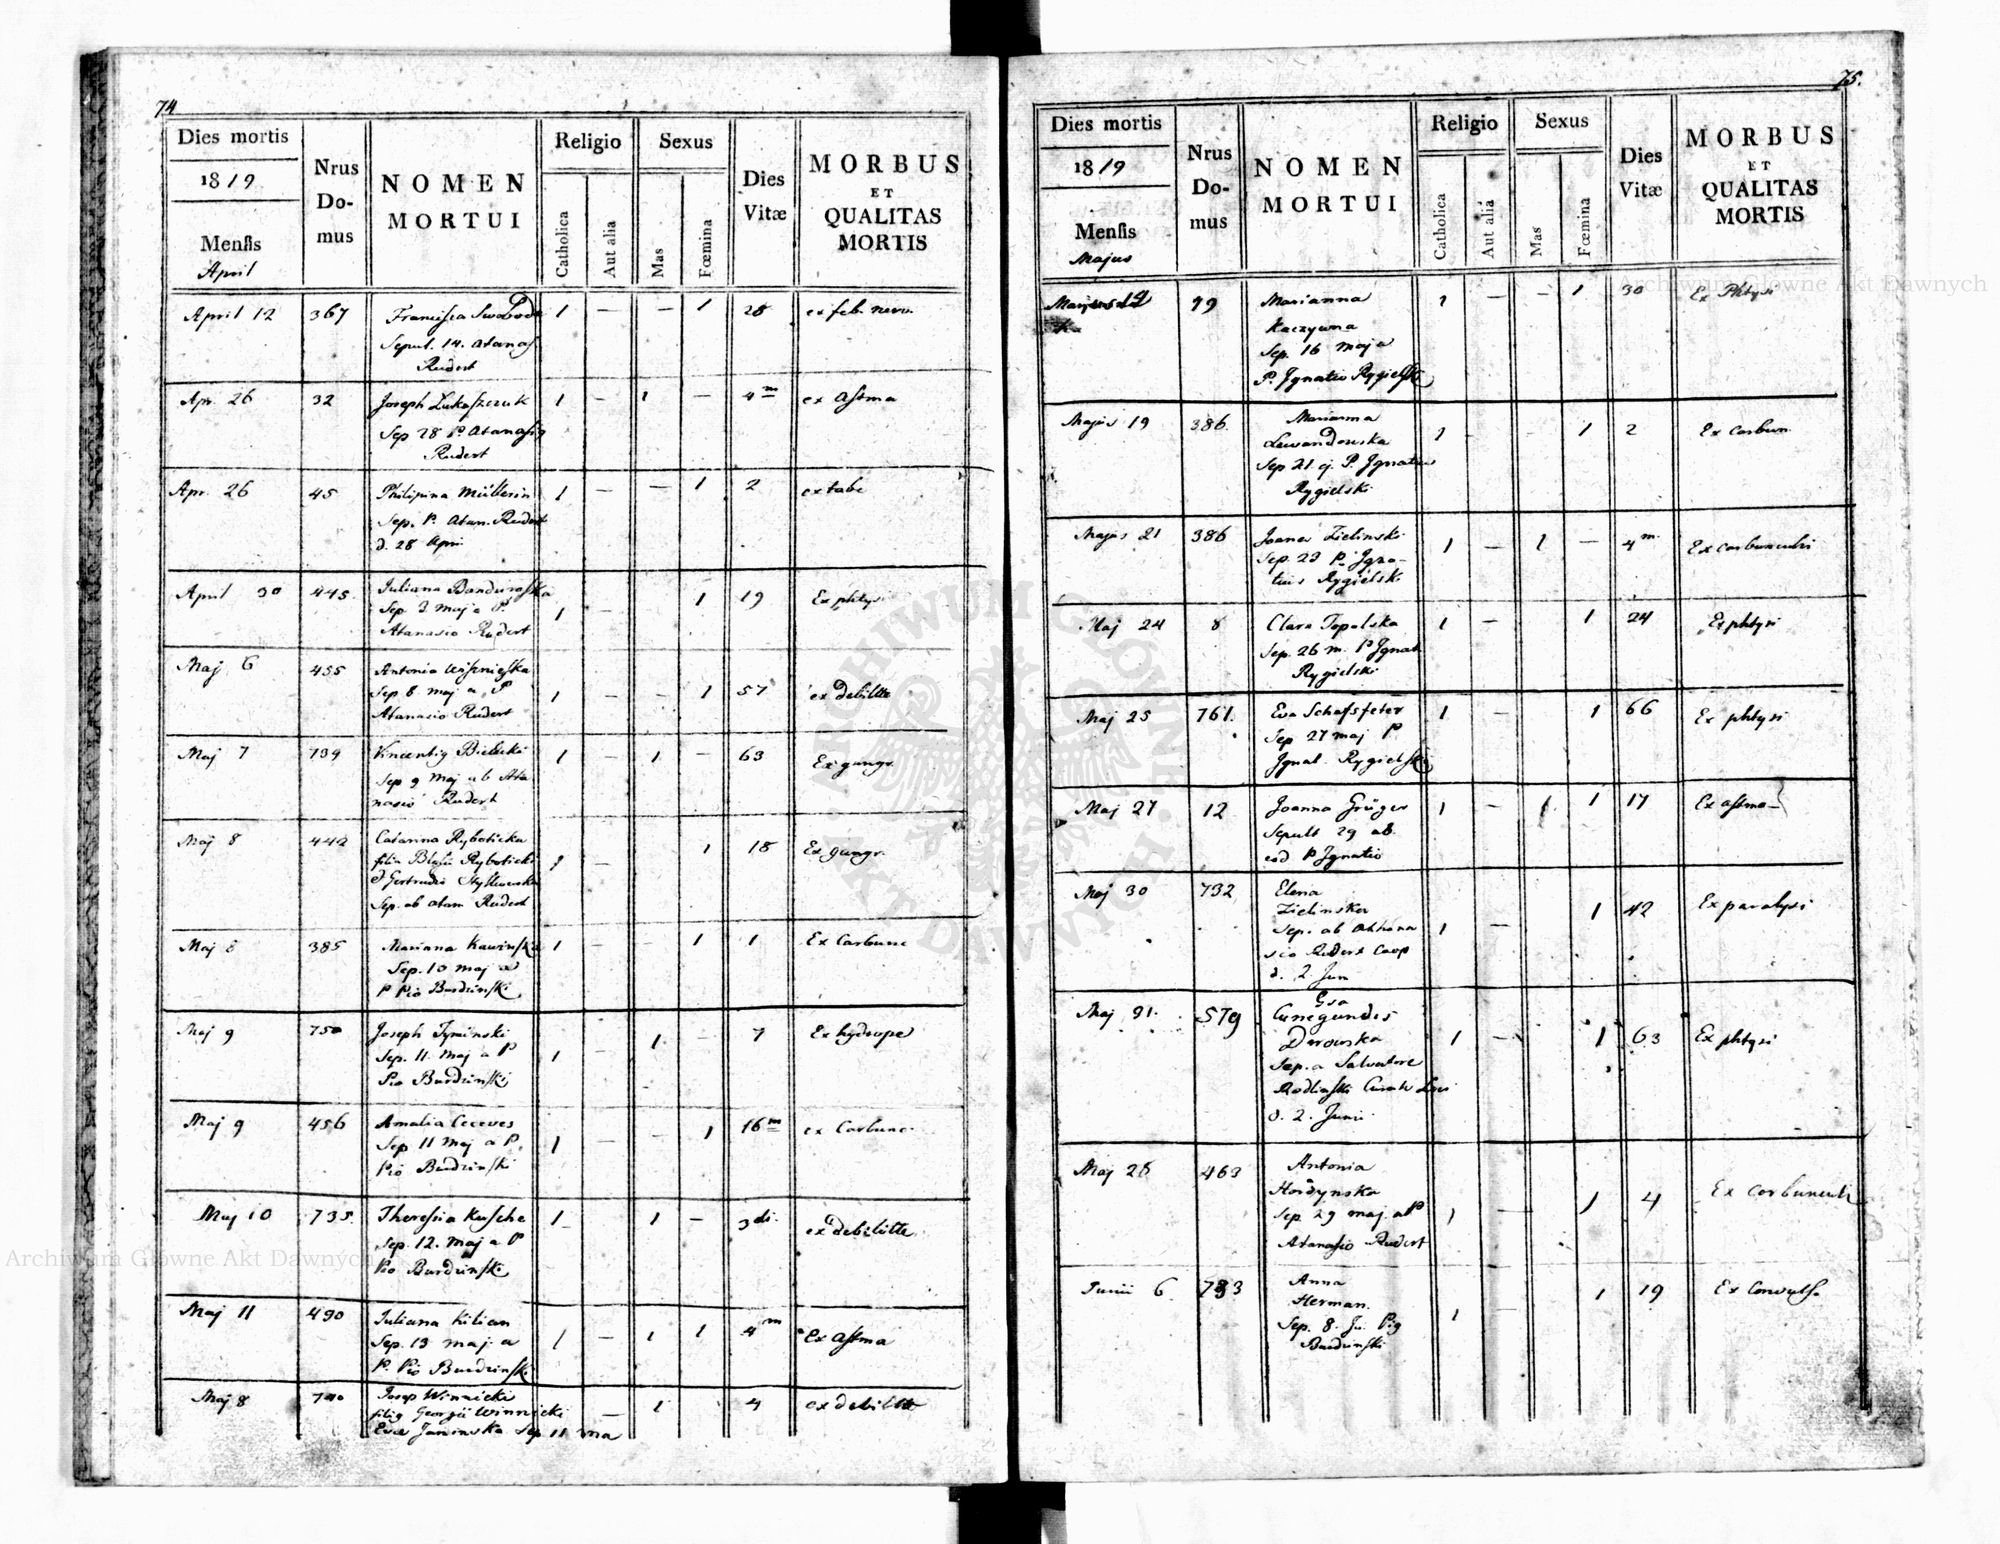 74
Dies mortis
1819
Mensis
April
Nrus
Do-
mus
NOMEN
MORTUI
Religio
Catholica
Aut alia
Sexus
Mas
Fœmina
Dies
Vitæ
MORBUS
ET
QUALITAS
MORTIS
April 12 367 Francisca Swoboda 1 — — 1 28 ex feb. nerv.
Sepul. 14. Atanas.
Rudert
Apr. 26 32 Joseph Lukaszczuk 1 — 1 — 4 m ex Astma
Sep 28 P. Atanasig
Rudert
Apr. 26 45 Philipina Müllerin 1 — — 1 2 ex tabe
Sep. P. Atan. Rudert
d. 28 Apri
April 30 445. Juliana Banduroska 1 — 1 19 Ex phtysi
Sep 3 Maj a P
Atanasio Rudert
Maj 6 455 Antonia Wisznieska 1 — — 1 57 ex debilitte
Sep 8 maj a P
Atanasio Rudert
Maj 7 739 Vincentig Bielecki 1 — 1 — 63 Ex gangr.
Sep 9 Maj ab Ata
nasio Rudert
Maj 8 442 Catarina Rybaticka 1 — 1 18 Ex gangr.
filia Blasii Rybaticki
Sep. ab Atan Rudert
Maj 8 385 Mariana Kawinska 1 — 1 1 Ex Carbunc
Sep. 10 maj a
P Pio Burdzinski
Maj 9 750 Joseph Tyminski 1 1 — 7 Ex hydrope
Sep. 11. Maj a P
Pio Burdzinski
Maj 9 456 Amalia 1 — — 1 16 m ex Carbunc.
Sep 11 Maj a P.
Pio Burdzinski
Maj 10 735. Theresia Kusche 1 1 — 3 di. ex debilitte
Sep. 12. Maj a P
Pio Burdzinski
Maj 11 490 Juliana Kilian 1 — 1 1 4 m Ex Astma
Sep. 13 maj. a
P. Pio Burdzinski
Maj 8 740 Josep Winnicki — 1 4 ex debilitte
filig Georgii Winnicki
Evæ Janinska Sep. 11 ma
75.
Dies mortis
1819
Mensis
Majus
Nrus
Do-
mus
NOMEN
MORTUI
Religio
Catholica
Aut alia
Sexus
Mas
Fœmina
Dies
Vitæ
MORBUS
ET
QUALITAS
MORTIS
Marianna 1 — — 1 30 Ex Phtysi
Kaczywna
Sep. 16 Maj a
P. Ignatio Rygielski
Majus 19 386. Marianna 1 - 1 2 Ex Carbun.
Lewandowska
Sep 21. ej. P. Ignatius
Rygielski
Majus 21 386 Joanes Zielinski 1 — 1 — 4 m. Ex carbunculi
Sep. 23 P. Igna-
tius Rygielski
Maj 24 8 Clara Topolska 1 — 1 24 Ex phtysi
Sep. 26 m. P Ignat
Rygielski
Maj 25 761. Eva Schafsfeter 1 — 1 66 Ex phtysi
Sep 27 maj P
Ignat. Rygielski
Maj 27 12 Joanna Grüger 1 — 1 1 17 Ex astma
Sepult 29 ab
eod P Ignatio
Maj 30 732 Elena 1 — 1 42 Ex paralysi
Zielinska
Sep. ab Athana
sio Rudert Coop
d. 2 Jun
Maj 31. 579 Gsa
Cunegundis
Drowska 1 — 1 63 Ex phtysi
Sep. a Salvatore
d. 2. Junii
Maj 28 463 Antonia 1 — 1 4 Ex Carbunculi
Hordynska
Sep. 29 maj. a P
Atanasio Rudert
Junii 6 733 Anna 1 — 1 19 Ex Convuls.
Herman.
Sep. 8. Ju. Pig
Burdzinski
Archiwum Główne Akt Dawnych
Archiwum Główne Akt Dawnych
ARCHIWUM GŁÓWNE
AKT DAWNYCH